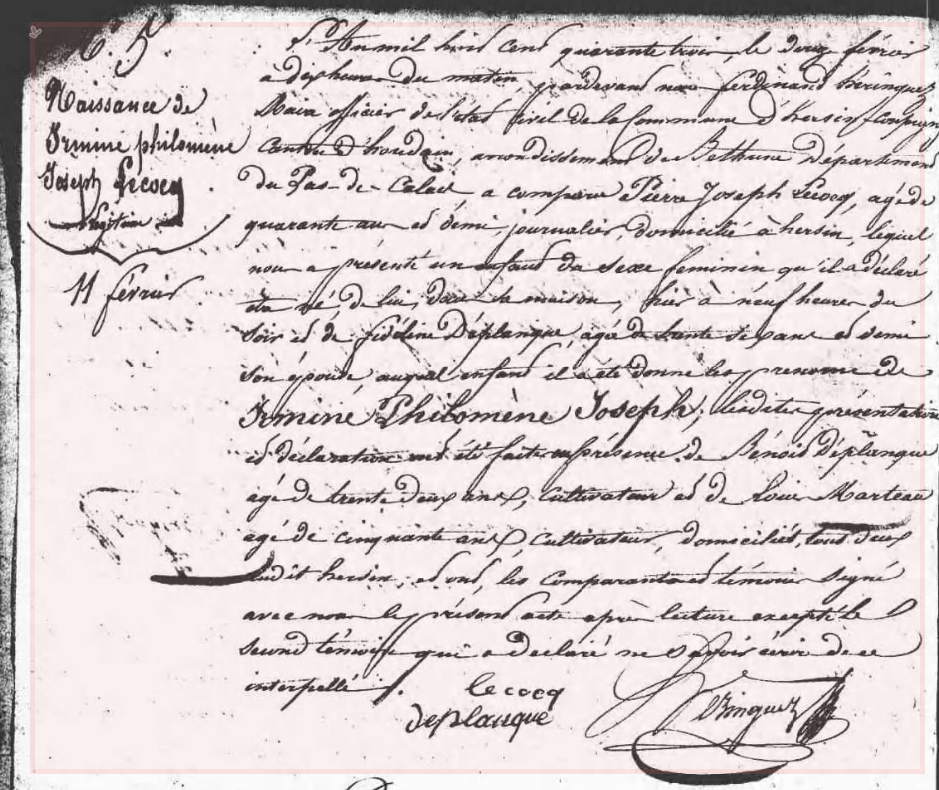 N.° 5
Naissance de
Irminé philomène
Joseph Lécocq
Légitime
11 février
L'An mil huit cent quarante trois, le douze février
à dix heures du matin, pardevant nous ferdinand
Maire officier de l'état Civil de la Commune d'hersin-Coupigny
Canton d'houdain, arrondissement de Béthune Département
du Pas-de-Calais, a comparu Pierre Joseph Lécocq, agé de
quarante ans et demi, journalier, domicilié à hersin, lequel
nous a présenté un enfant du sexe féminin qu'il a déclaré
être né, de lui, dans sa maison, hier à neuf heures du
soir et de fidéline Déplanque, agée de trente ans et demi
son épouse auquel enfant il a été donné les prénoms de
Irminé Philomène Joseph, lesdites présentation
et déclaration ont été faites en présence de Bénoit Déplanque
agé de trente deux ans, cultivateur et de Louis Marteau
agé de cinquante ans, cultivateur, domiciliés, tous deux
audit hersin, et ont, les comparants et témoins signé
avec nous le présent acte après lecture excepté le
second témoin qui a déclaré ne savoir écrire de ce
interpellé.
lecocq
deplanque